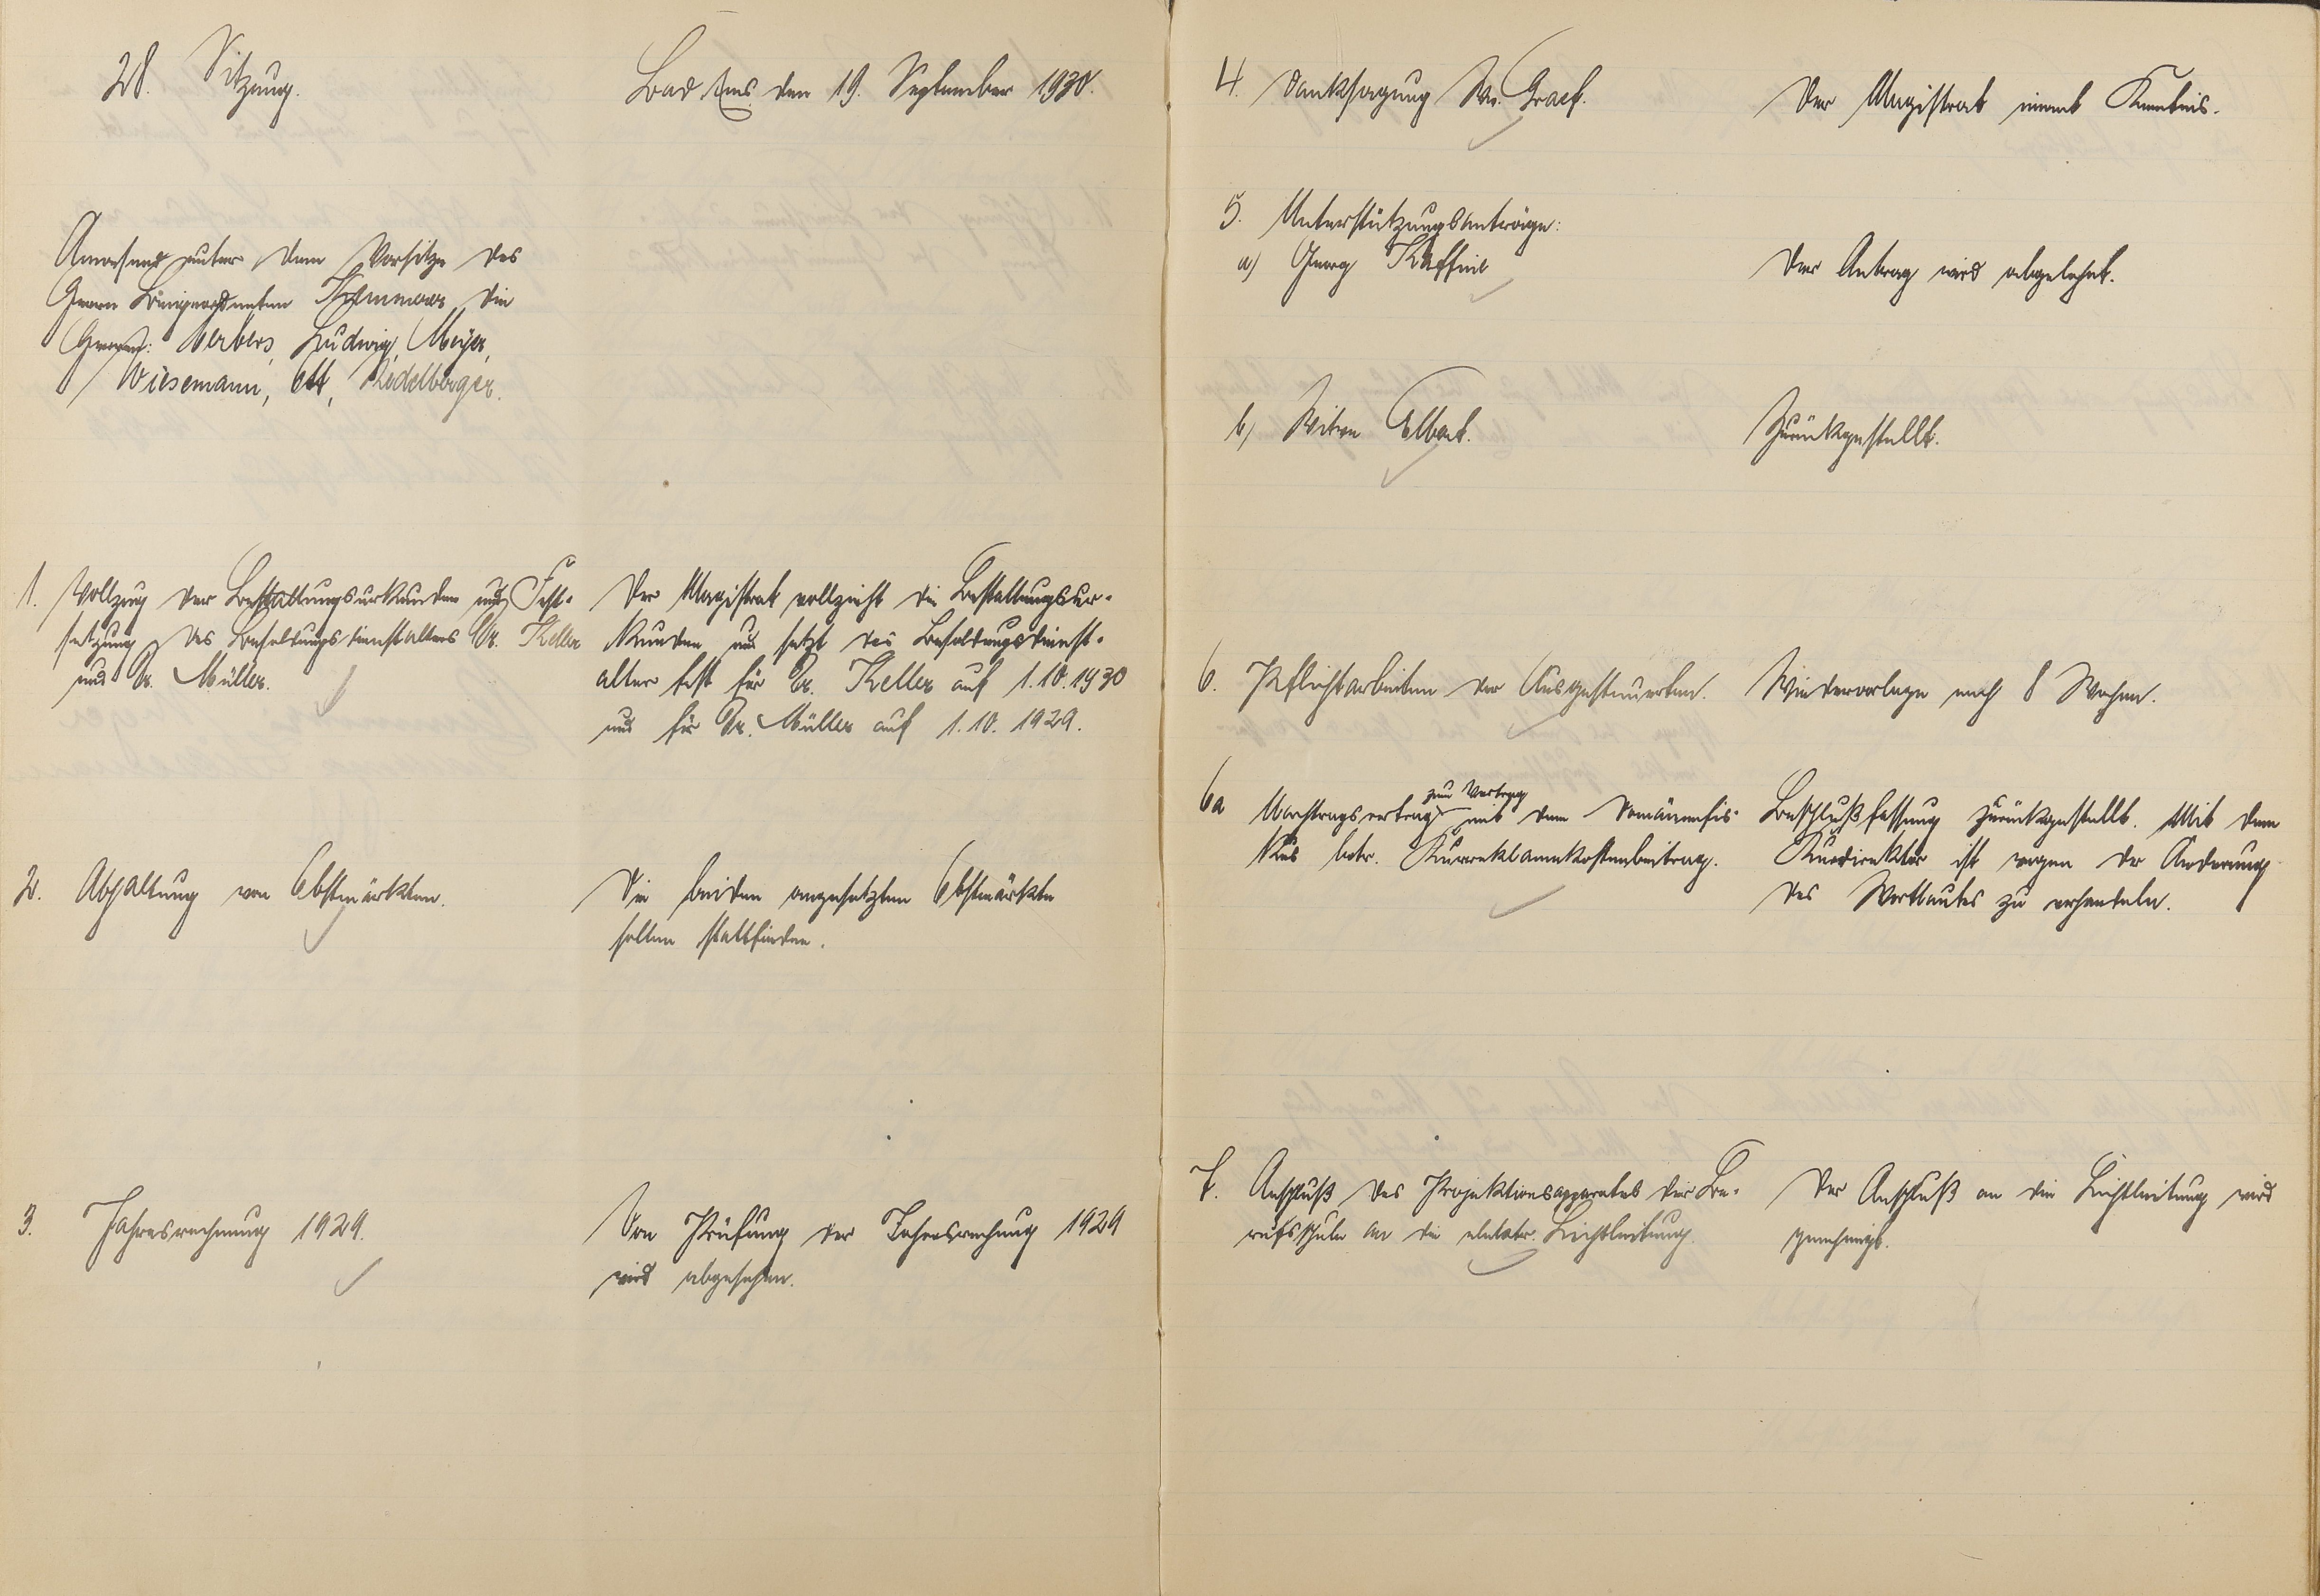 28. Sitzung.
Bad Ems, den 19. September 1930.
Anwesend unter dem Vorsitze des
Herrn Beigeordneten Kemmerer die
Herren: Berbers, Ludwig, Meyer,
Wiesemann, Ott, Redelberger.
1. Vollzug der Bestallungsurkunden und Fest-
setzung des Besoldungsdienstalters Dr. Keller
und Dr. Müller.
Der Magistrat vollzieht die Bestallungsur-
kunden und setzt das Besoldungsdienst-
alter fest für Dr. Keller auf 1.10.1930
und für Dr. Müller auf 1.10.1929.
2. Abhaltung von Obstmärkten.
Die beiden angesetzten Obstmärkte
sollen stattfinden.
3. Jahresrechnung 1929.
Von Prüfung der Jahresrechnung 1929
wird abgesehen.
4. Danksagung Graef.
Der Magistrat nimmt Kenntnis.
5. Unterstützungsanträge:
a) Georg Kaffine
Der Antrag wird abgelehnt.
b) Witwe Elbert.
Zurückgestellt.
6. Pflichtarbeiten der Ausgesteuerten.
Wiedervorlage nach 8 Wochen.
6a Nachtragsvertrag zum Vertrag mit dem Domänenfis-
kus betr. Kurreklamekostenbeitrag.
Beschlußfassung zurückgestellt. Mit dem
Kurdirektor ist wegen der Änderung
des Wortlautes zu verhandeln.
7. Anschluß des Projektionsapparates der Be-
rufsschule an die elektr. Lichtleitung.
Der Anschluß an die Lichtleitung wird
genehmigt.